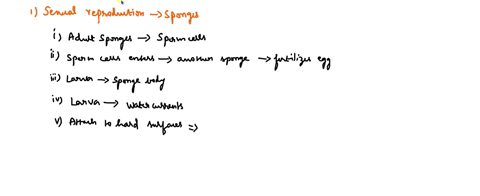 1) Sexual reproduction → Sponges
i) Adult Sponges → Sperm cells
ii) Sperm cells enters → another sponge → fertilizes egg
iii) Larva → Sponge body
iv) Larva → Water currents
v) Attach to hard surfaces ⇒